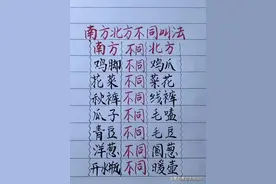 南方北方不同叫法
南方 不同 北方
鸡脚 不同 鸡爪
花菜 不同 菜花
秋裤 不同 线裤
瓜子 不同 毛嗑
青豆 不同 毛豆
洋葱 不同 圆葱
开水瓶 不同 暖壶